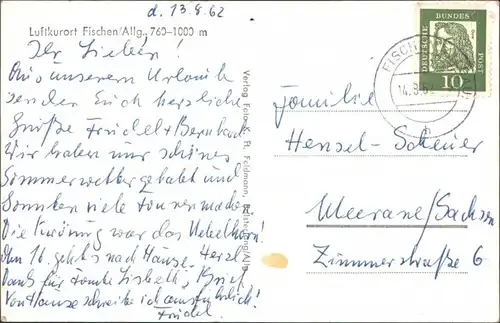 d. 13.8.62
Luftkurort Fischen/Allg. 760-1000 m
Ihr Lieben!
Aus unserem Urlaub
senden Euch herzliche
Grüße Friedel + Bernhard
Wir haben nur schönes
Sommerwetter gehabt und
konnten viele Touren machen
Die Krönung war das Nebelhorn!
Am 16. gehts nach Hause. Herzl.
Dank für Tante Lisbeths Brief
Von Hause schreibe ich ausführlich!
Friedel
Verlag Foto K. Ft. Feldmann,
DEUTSCHE
BUNDES
POST
10
FISCHEN
14.8.62
Familie
Hensel-Scheuer
Meerane/Sachsen
Zimmerstraße 6